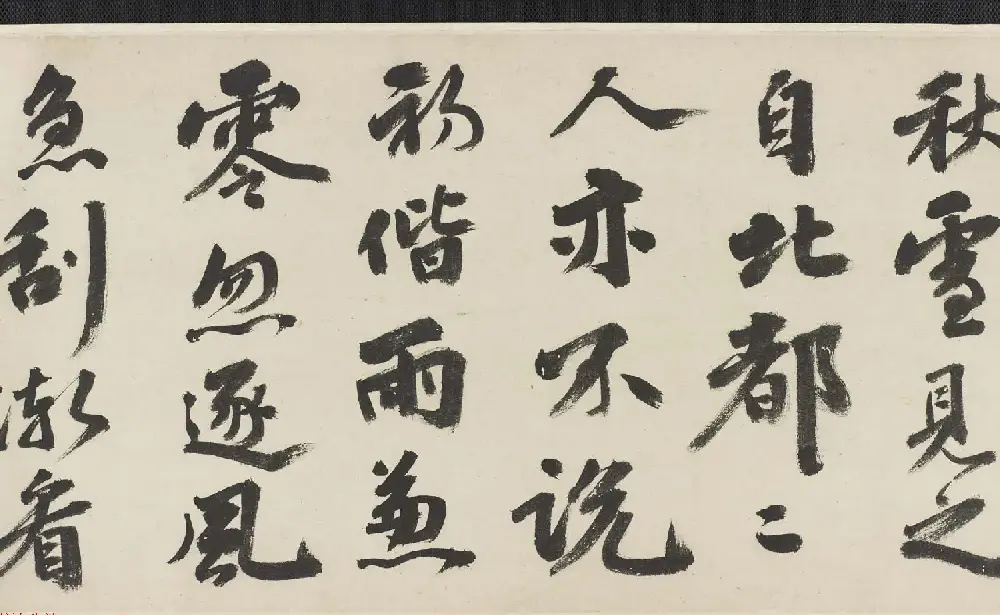 秋雪見之
自北都二
人亦不説
初偕雨兼
零忽逐風
急刮漸看